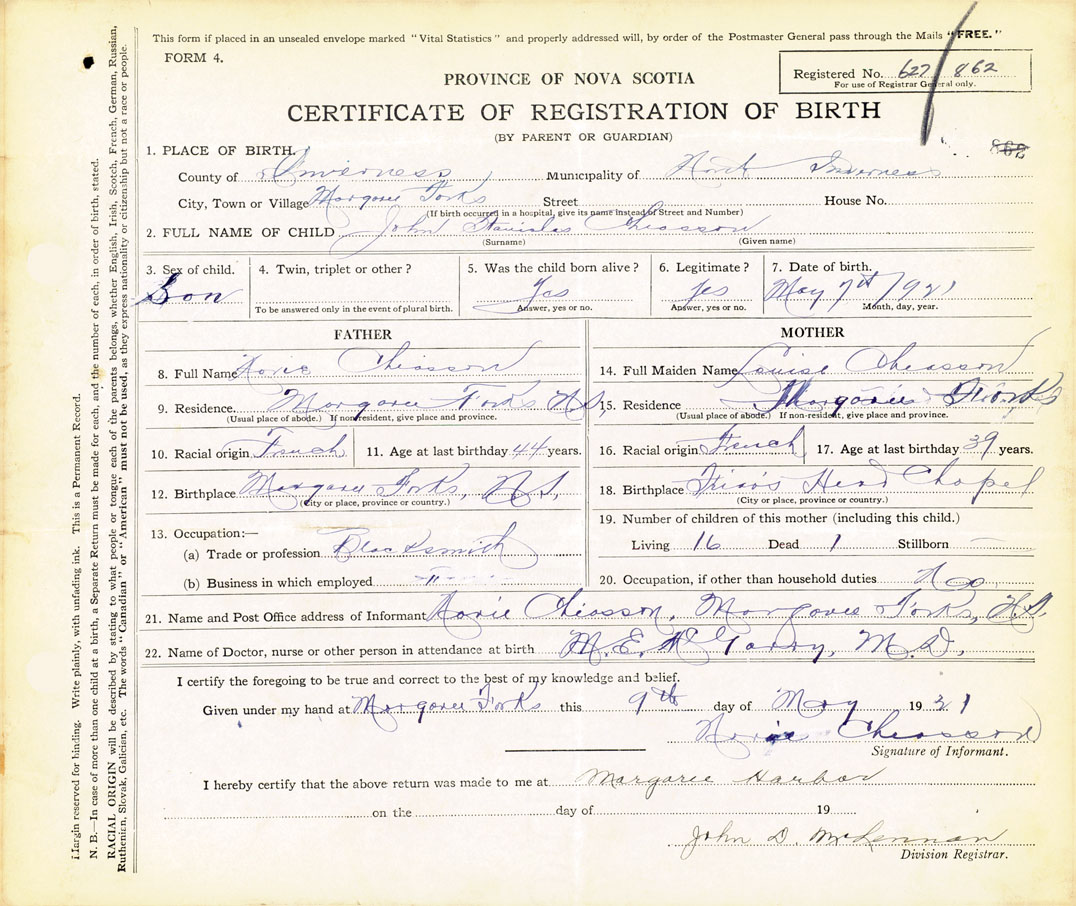 This form if placed in an unsealed envelope marked "Vital Statistics" and properly addressed will, by order of the Postmaster General pass through the Mails "FREE."
FORM 4.
Registered No. 627/862
For use of Registrar General only.
PROVINCE OF NOVA SCOTIA
CERTIFICATE OF REGISTRATION OF BIRTH
(BY PARENT OR GUARDIAN)
862
1. PLACE OF BIRTH.
County of Inverness Municipality of North Inverness
City, Town or Village Margaree Forks Street House No.
(If birth occurred in a hospital, give its name instead of Street and Number)
2. FULL NAME OF CHILD John Stanislas Chiasson
(Surname) (Given name)
3. Sex of child. 4. Twin, triplet or other? 5. Was the child born alive? 6. Legitimate? 7. Date of birth.
Son Yes Yes May 7th 1921
To be answered only in the event of plural birth. Answer, yes or no. Answer, yes or no. Month, day, year.
FATHER
8. Full Name Chiasson
9. Residence. Margaree Forks N.S.
(Usual place of abode.) If non-resident, give place and province.
10. Racial origin French 11. Age at last birthday 44 years.
12. Birthplace Margaree Forks, N.S.
(City or place, province or country.)
13. Occupation:—
(a) Trade or profession Blacksmith
(b) Business in which employed "
MOTHER
14. Full Maiden Name Louise Chiasson
15. Residence Margaree Forks
(Usual place of abode.) If non-resident, give place and province.
16. Racial origin French 17. Age at last birthday 39 years.
18. Birthplace Head Chapel
(City or place, province or country.)
19. Number of children of this mother (including this child.)
Living 16 Dead 1 Stillborn —
20. Occupation, if other than household duties No
21. Name and Post Office address of Informant Chiasson, Margaree Forks, N.S.
22. Name of Doctor, nurse or other person in attendance at birth M.E. McGarry, M.D.
I certify the foregoing to be true and correct to the best of my knowledge and belief.
Given under my hand at Margaree Forks this 9th day of May 1921
Chiasson
Signature of Informant.
I hereby certify that the above return was made to me at Margaree Harbor
on the day of 19
John D. McLennan
Division Registrar.
Margin reserved for binding. Write plainly, with unfading ink. This is a Permanent Record.
N. B.—In case of more than one child at a birth, a Separate Return must be made for each, and the number of each, in order of birth, stated.
RACIAL ORIGIN will be described by stating to what people or tongue each of the parents belongs, whether English, Irish, Scotch, French, German, Russian,
Ruthenian, Slovak, Galician, etc. The words "Canadian" or "American" must not be used, as they express nationality or citizenship but not a race or people.